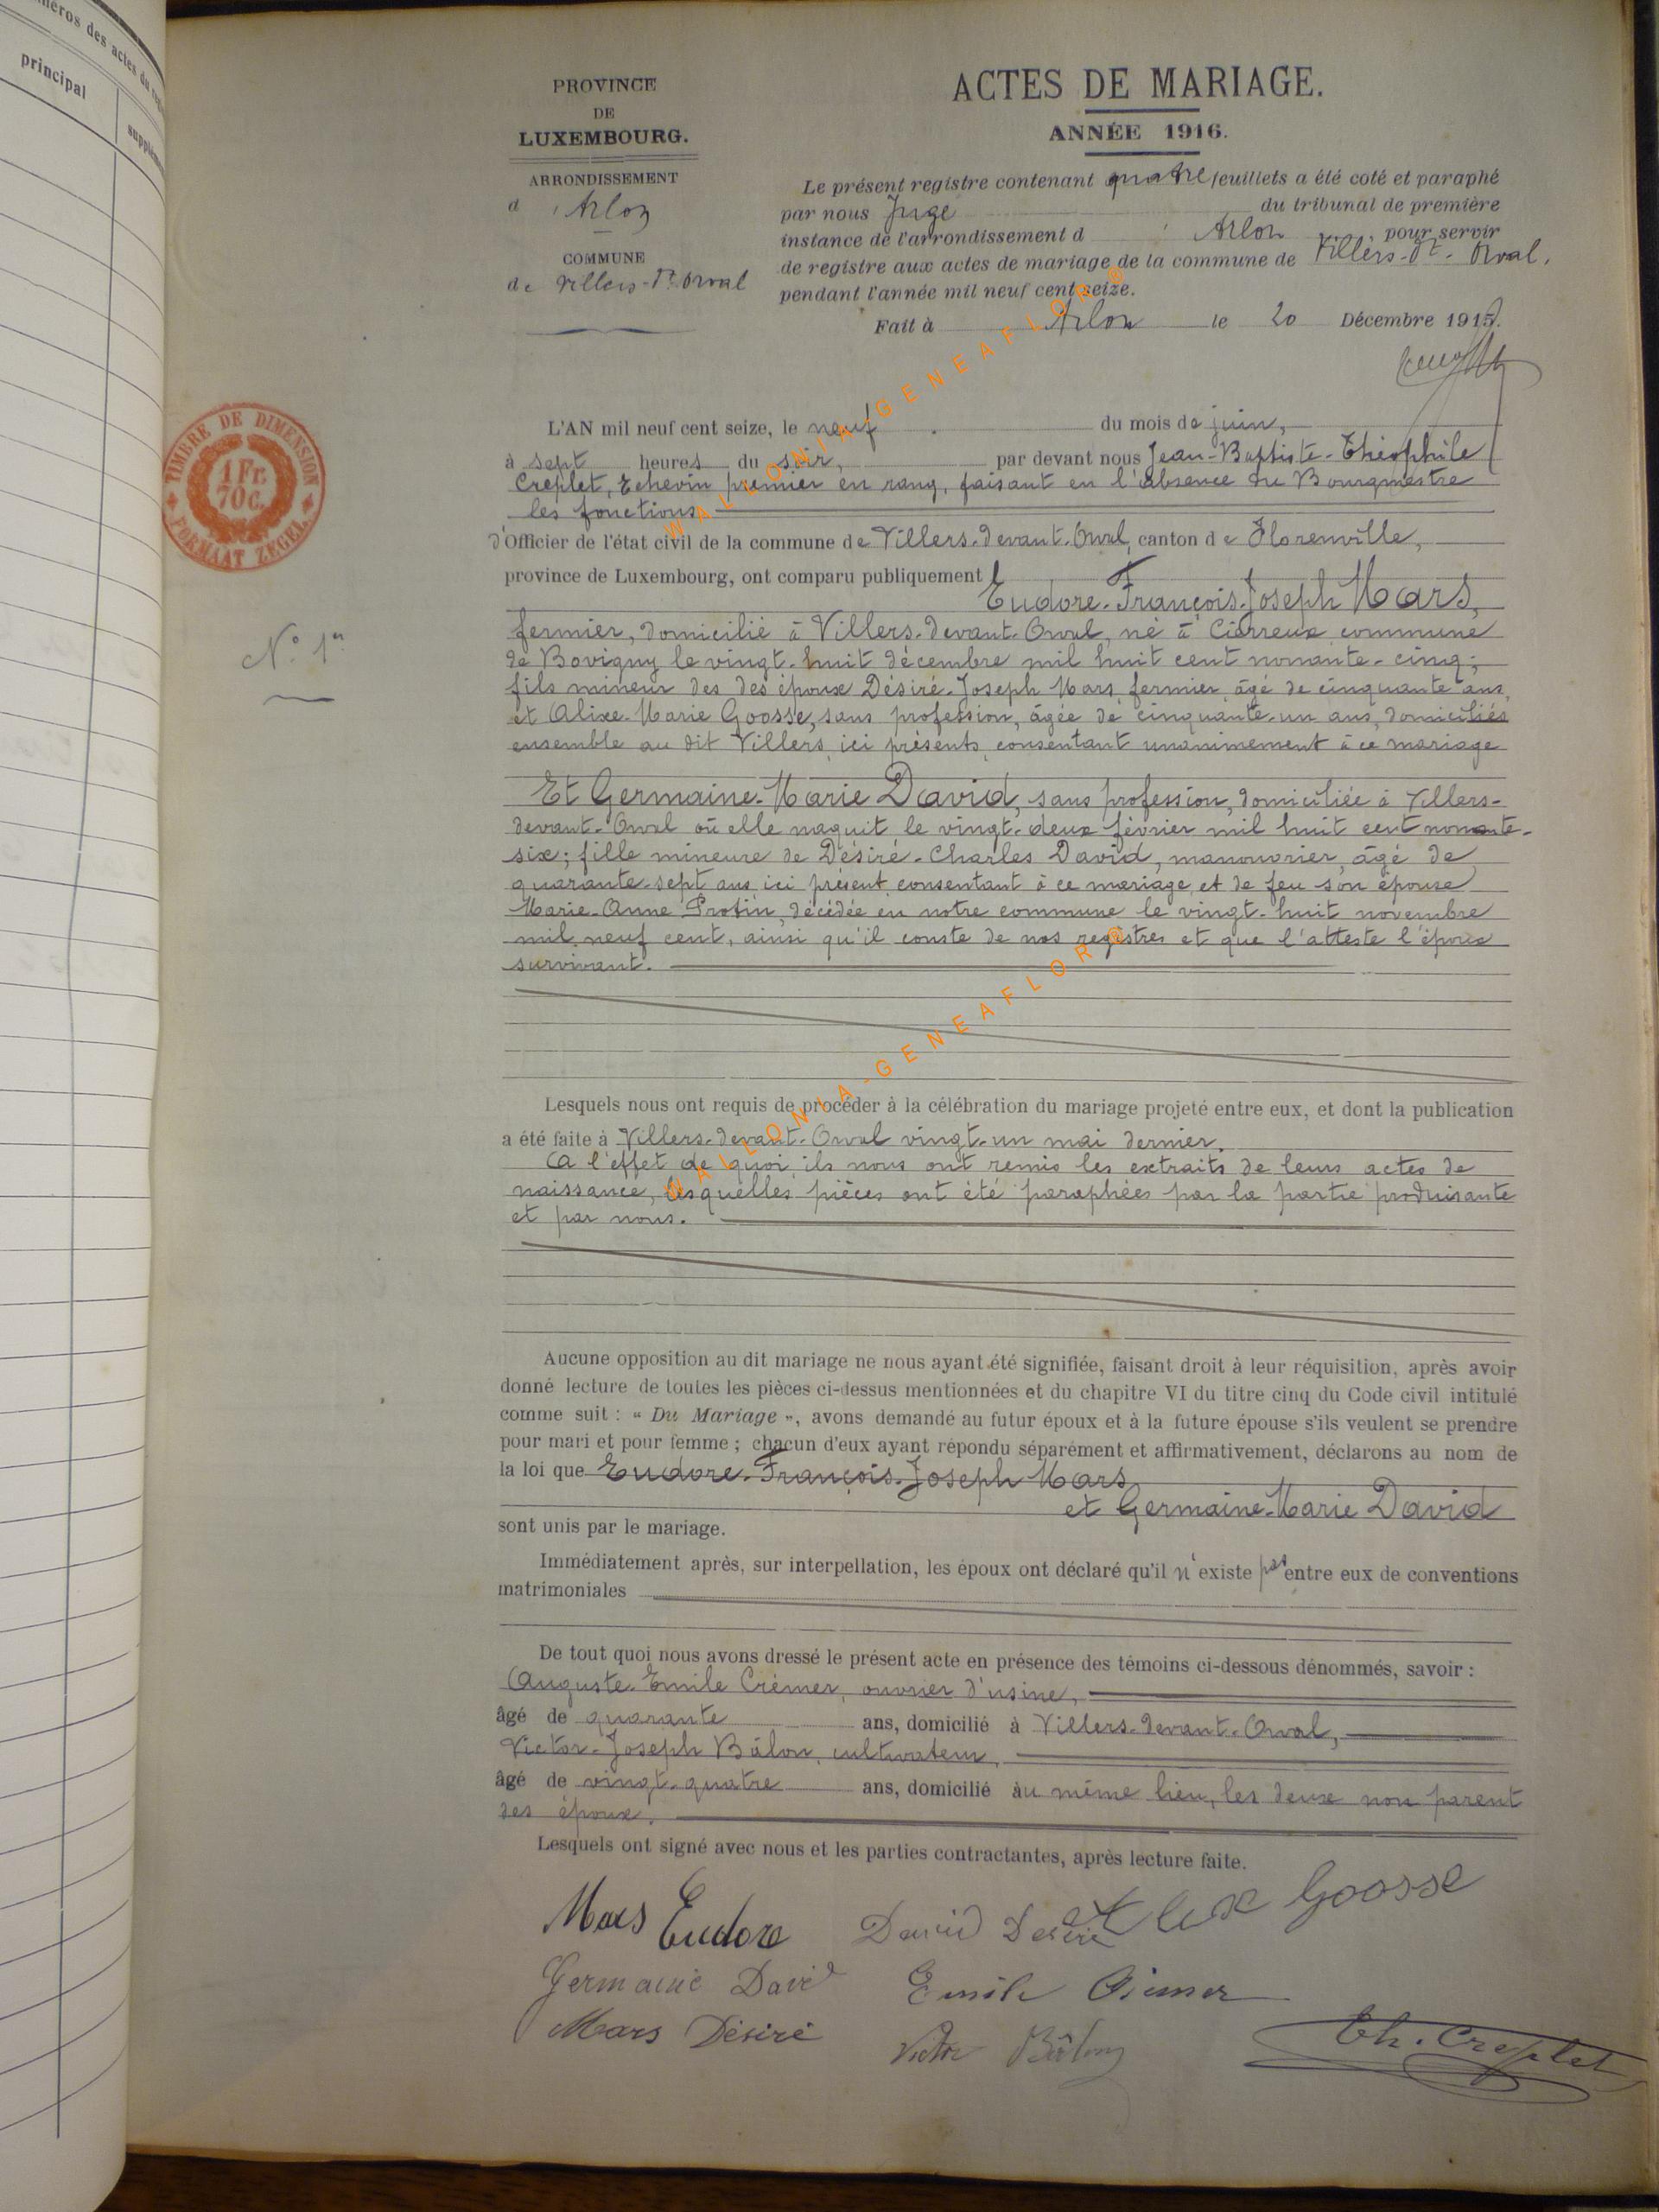 numéros des actes du
principal
PROVINCE
DE
LUXEMBOURG.
ARRONDISSEMENT
d'Arlon
COMMUNE
de Villers-Dt Orval
ACTES DE MARIAGE.
ANNÉE 1916.
Le présent registre contenant quatre feuillets a été coté et paraphé
par nous Juge du tribunal de première
instance de l'arrondissement d'Arlon, pour servir
de registre aux actes de mariage de la commune de Villers-Dt-Orval,
pendant l'année mil neuf cent seize.
Fait à Arlon le 20 Décembre 1915.
TIMBRE DE DIMENSION
1 Fr.
70 C.
FORMAAT ZEGEL
N° 1er
L'AN mil neuf cent seize, le neuf du mois de juin,
à sept heures du soir, par devant nous Jean-Baptiste-Théophile
Creplet, Echevin premier en rang, faisant en l'absence du Bourgmestre
les fonctions
d'Officier de l'état civil de la commune de Villers-devant-Orval, canton de Florenville,
province de Luxembourg, ont comparu publiquement
Eudore-François-Joseph Mars,
fermier, domicilié à Villers-devant-Orval, né à Cierreux commune
de Bovigny le vingt-huit décembre mil huit cent nonante-cinq;
fils mineur des des époux Désiré-Joseph Mars, fermier, âgé de cinquante ans,
et Alixe-Marie Goosse, sans profession, âgée de cinquante-un ans, domiciliés
ensemble au dit Villers, ici présents, consentant unanimement à ce mariage
Et Germaine-Marie David, sans profession, domiciliée à Villers-
devant-Orval où elle naquit le vingt-deux février mil huit cent nonante-
six; fille mineure de Désiré-Charles David, manouvrier, âgé de
quarante-sept ans, ici présent, consentant à ce mariage, et de feu son épouse
Marie-Anne Protin, décédée en notre commune le vingt-huit novembre
mil neuf cent, ainsi qu'il conste de nos registres et que l'atteste l'époux
survivant.
Lesquels nous ont requis de procéder à la célébration du mariage projeté entre eux, et dont la publication
a été faite à Villers-devant-Orval vingt-un mai dernier.
A l'effet de quoi, ils nous ont remis les extraits de leurs actes de
naissance, lesquelles pièces ont été paraphées par la partie produisante
et par nous.
Aucune opposition au dit mariage ne nous ayant été signifiée, faisant droit à leur réquisition, après avoir
donné lecture de toutes les pièces ci-dessus mentionnées et du chapitre VI du titre cinq du Code civil intitulé
comme suit : « Du Mariage », avons demandé au futur époux et à la future épouse s'ils veulent se prendre
pour mari et pour femme ; chacun d'eux ayant répondu séparément et affirmativement, déclarons au nom de
la loi que Eudore-François-Joseph Mars
et Germaine-Marie David
sont unis par le mariage.
Immédiatement après, sur interpellation, les époux ont déclaré qu'il n'existe pas entre eux de conventions
matrimoniales
De tout quoi nous avons dressé le présent acte en présence des témoins ci-dessous dénommés, savoir :
Auguste-Emile Crémer, ouvrier d'usine,
âgé de quarante ans, domicilié à Villers-devant-Orval,
Victor-Joseph Bâlon, cultivateur,
âgé de vingt-quatre ans, domicilié au même lieu, les deux non parent
des époux.
Lesquels ont signé avec nous et les parties contractantes, après lecture faite.
Mars Eudore David Désiré Alix Goosse
Germaine David Emile Crémer
Mars Désiré Victor Bâlon Th. Creplet
WALLONIA-GENEAFLOR®
WALLONIA-GENEAFLOR®